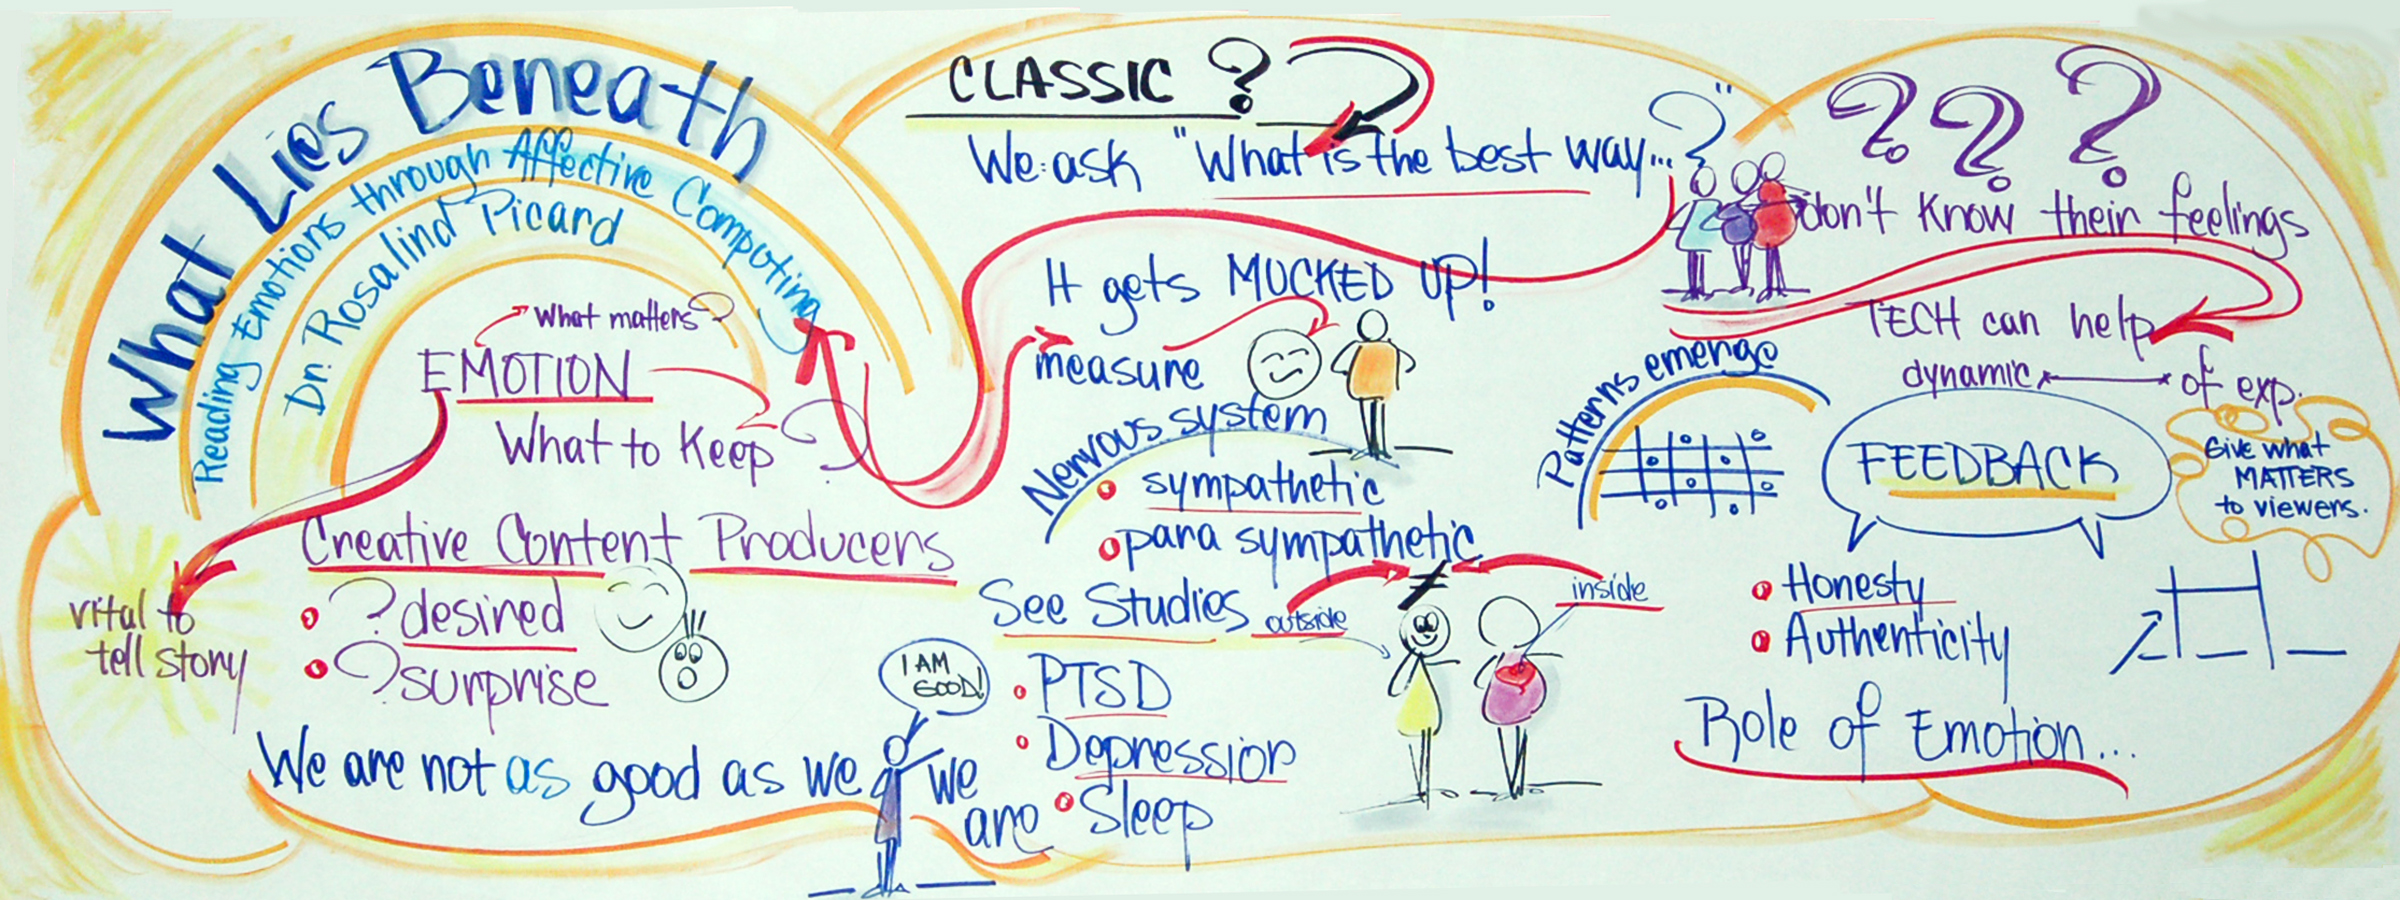 What Lies Beneath
Reading Emotions through Affective Computing
Dr. Rosalind Picard
What matters?
EMOTION
What to Keep?
vital to
tell story
Creative Content Producers
? desired
? surprise
We are not as good as we
we
are
I AM
GOOD!
CLASSIC ?
We ask "What is the best way...?"
It gets MUCKED UP!
measure
Nervous system
sympathetic
para sympathetic
See Studies
outside
≠
inside
PTSD
Depression
Sleep
???
don't know their feelings
TECH can help
dynamic of exp.
Patterns emerge
FEEDBACK
Give what
MATTERS
to viewers.
Honesty
Authenticity
Role of Emotion...